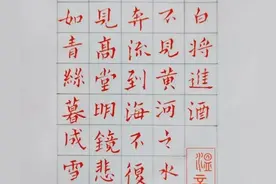 白將進酒
不見黃河之水
奔流到海不復
見高堂明鏡悲
如青絲暮成雪